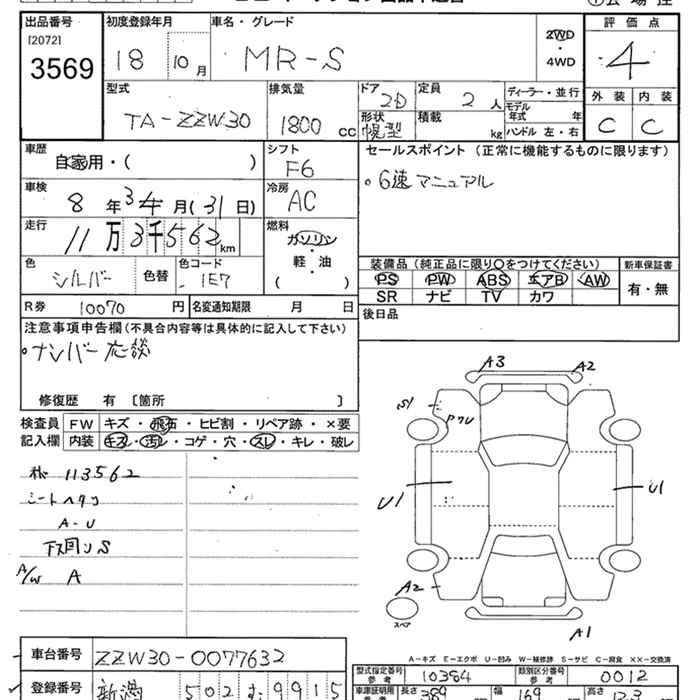 出品番号
[2072]
3569
初度登録年月
18 10 月
車名・グレード
MR-S
2WD
・
4WD
評価点
4
外装 内装
C C
型式
TA-ZZW30
排気量
1800 CC
ドア
2D
形状
幌型
定員
2 人
積載
kg
ディーラー・並行
モデル年式 年
ハンドル 左・右
車歴
自家用・( )
シフト
F6
セールスポイント (正常に機能するものに限ります)
。6速マニュアル
車検
8 年 3 月 (31 日)
冷房
AC
走行
11万3千562 km
燃料
ガソリン
・
軽・油
( )
色
シルバー
色替
色コード
1E7
装備品 (純正品に限り○をつけてください)
PS PW ABS エアB AW
SR ナビ TV カワ
新車保証書
有・無
R券 10070 円
名変通知期限 月 日
後日品
注意事項申告欄 (不具合内容等は具体的に記入して下さい)
。ナンバー応談
修復歴 有 [箇所 ]
検査員記入欄
FW キズ・飛石・ヒビ割・リペア跡・×要
内装 キズ・汚レ・コゲ・穴・スレ・キレ・破レ
113562
シートヘタリ
A-U
下回りS
A/W A
A3 A2
S1
U1 U1
A2
スペア
A1
A-キズ E-エクボ U-凹み W-補修跡 S-サビ C-腐食 XX-交換済
車台番号 ZZW30-0077632
登録番号 新潟 502 む 9915
型式指定番号 参考 10384
類別区分番号 参考 0012
車庫証明用 参考 長さ 389 幅 169 高さ 123